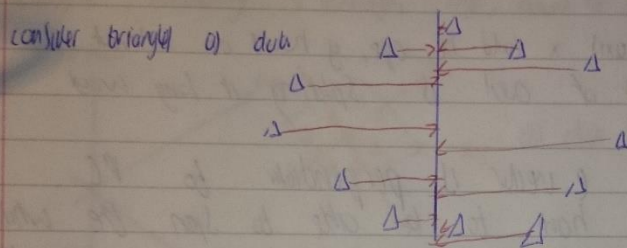 consider triangles as data